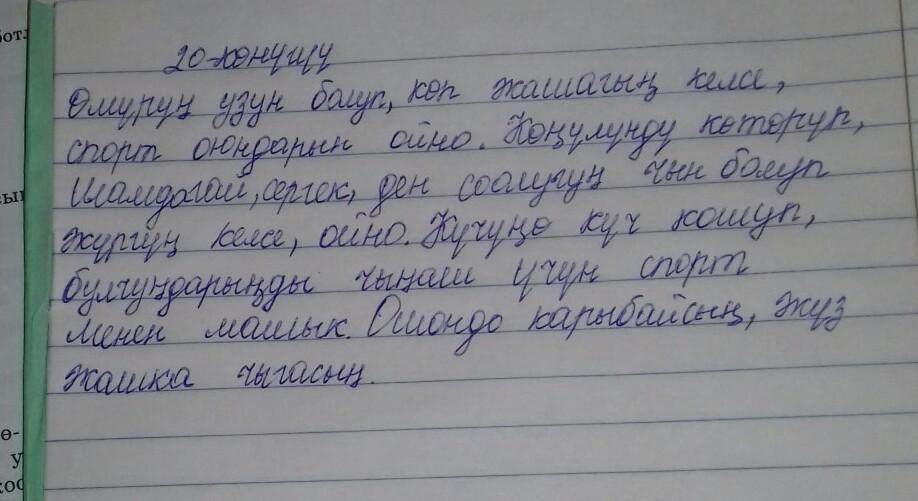 20-көнүгүү
Өмүрүң узун болуп, көп жашагың келсе,
спорт оюндарын ойно. Көңүлүңдү көтөрүп,
шамдагай, сергек, ден соолугуң чын болуп
жүргүң келсе, ойно. Күчүңө күч кошуп,
булчуңдарыңды чыңаш үчүн спорт
менен машык. Ошондо карыбайсың, жүз
жашка чыгасың.
ө-
у